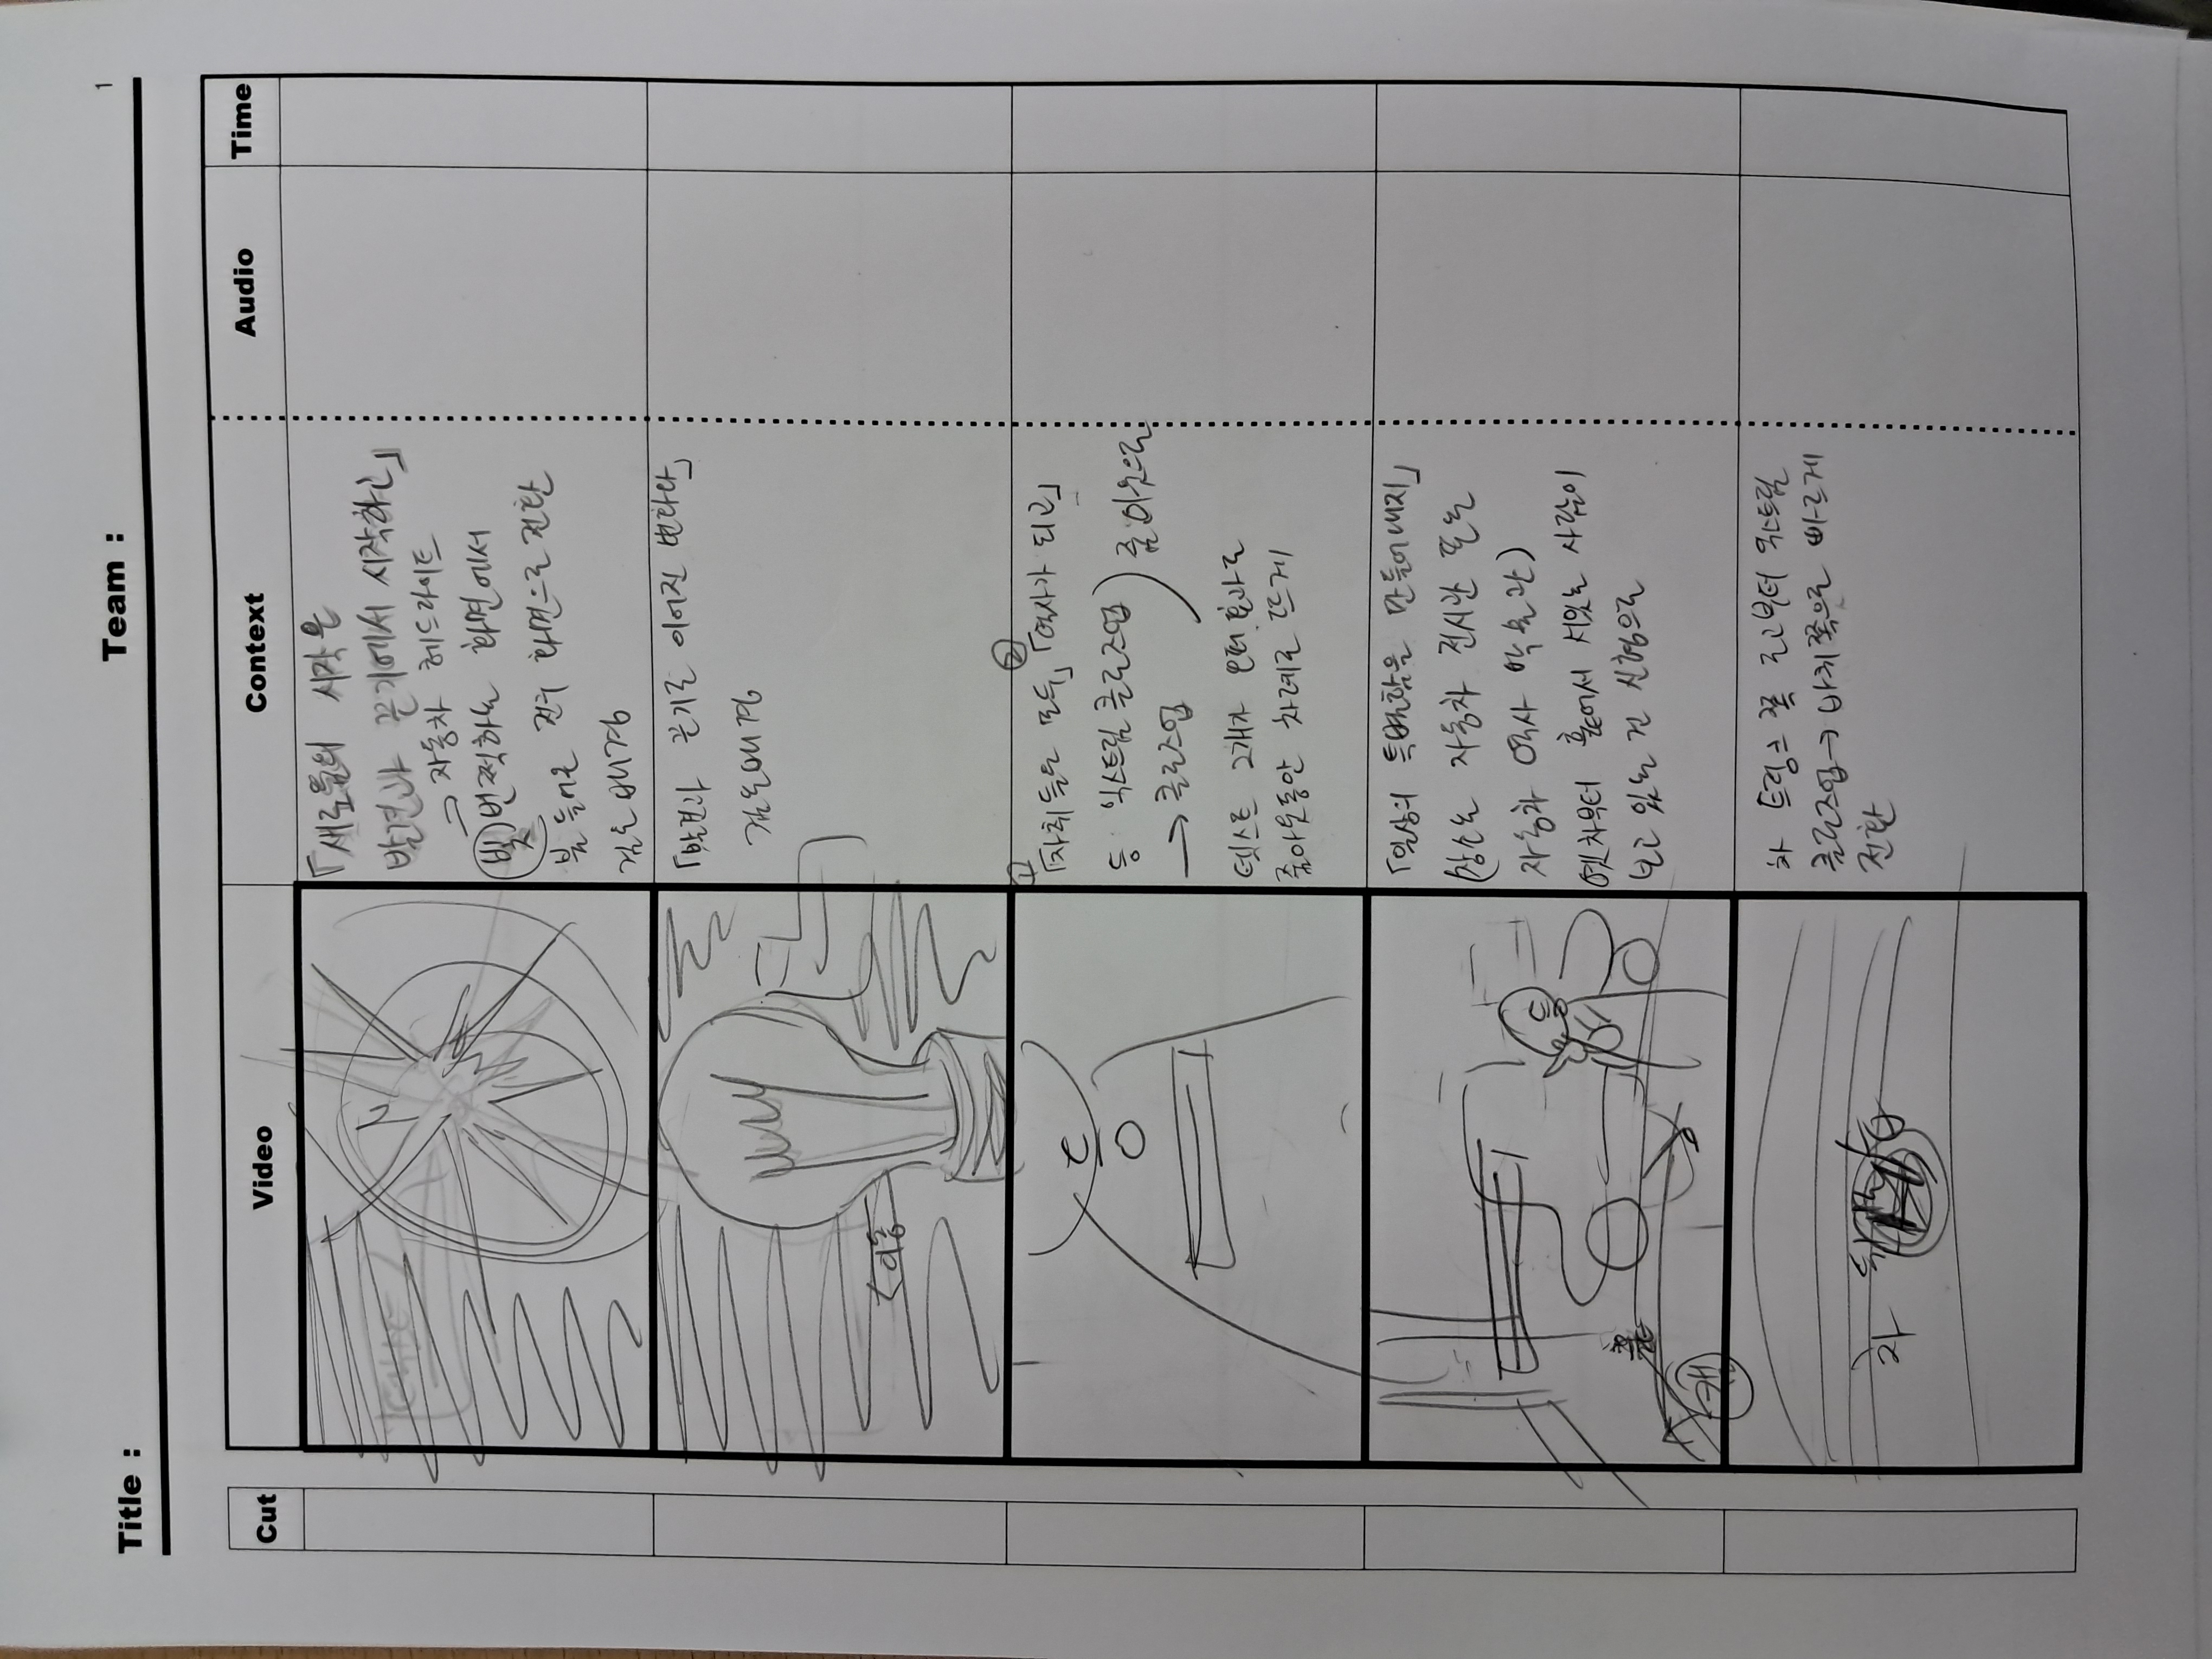 1
Title :
Team :
Cut
Video
Context
Audio
Time
「새로움의 시작은
발견과 끈기에서 시작하고」
→ 자동차 헤드라이트
빛 번쩍하는 화면에서
불 들어온 전구 화면으로 전환
검은 배경
텍스트
「발견과 끈기로 이어진 변화다」
검은 배경
이동
① ②
「자취들은 모두」 「역사가 되고」
등 익스트림 클로즈업
→ 클로즈업
줌 아웃으로
텍스트 2개가 오퍼 효과로
줌아웃동안 차례로 뜨게
「일상의 특별함을 만들어내지」
(장소는 자동차 전시관 또는
자동차 역사 박물관)
옛차부터 훑어서 서있는 사람이
보고 있는 건 신형으로
줌
캠
차 트렁크 쪽 로고부터 익스트림
클로즈업 → 바퀴쪽으로 빠르게
전환
차